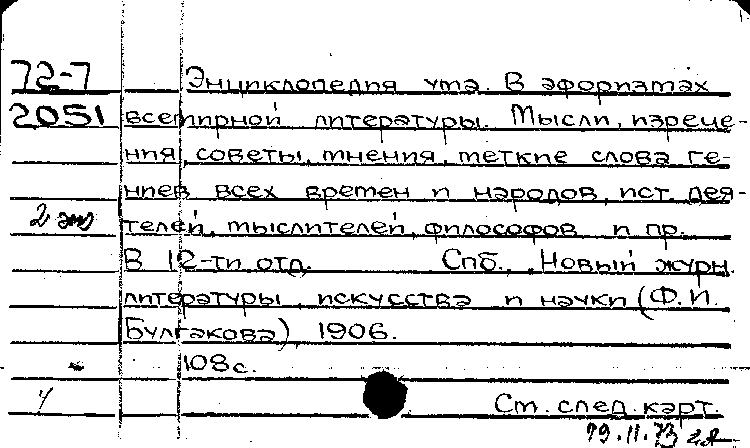 72-7 Энциклопедия ума. В афоризмах
2051 всемирной литературы. Мысли, изрече-
ния, советы, мнения, меткие слова ге-
ниев всех времен и народов, ист. дея-
2 экз телей, мыслителей, философов и пр.
В 12-ти отд. Спб., "Новый журн.
литературы, искусства и науки (Ф. И.
Булгакова), 1906.
108 с.
Ч См. след. карт.
19.11.73